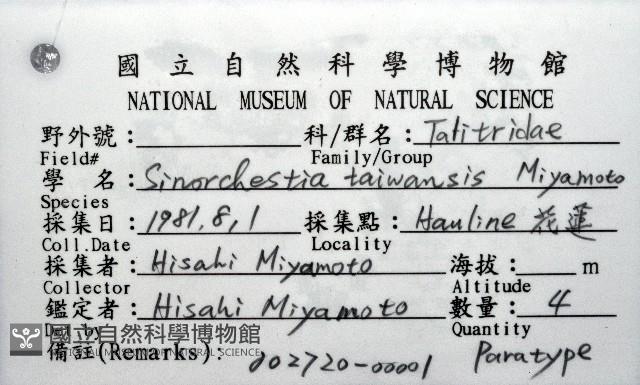 國立自然科學博物館
NATIONAL MUSEUM OF NATURAL SCIENCE
野外號： 科/群名：Talitridae
Field# Family/Group
學 名：Sinorchestia taiwansis Miyamoto
Species
採集日：1981,8,1 採集點：Hauline 花蓮
Coll.Date Locality
採集者：Hisahi Miyamoto 海拔： m
Collector Altitude
鑑定者：Hisahi Miyamoto 數量：4
Det by Quantity
國立自然科學博物館
NATIONAL MUSEUM OF NATURAL SCIENCE
備註(Remarks)： 002720-00001 Paratype